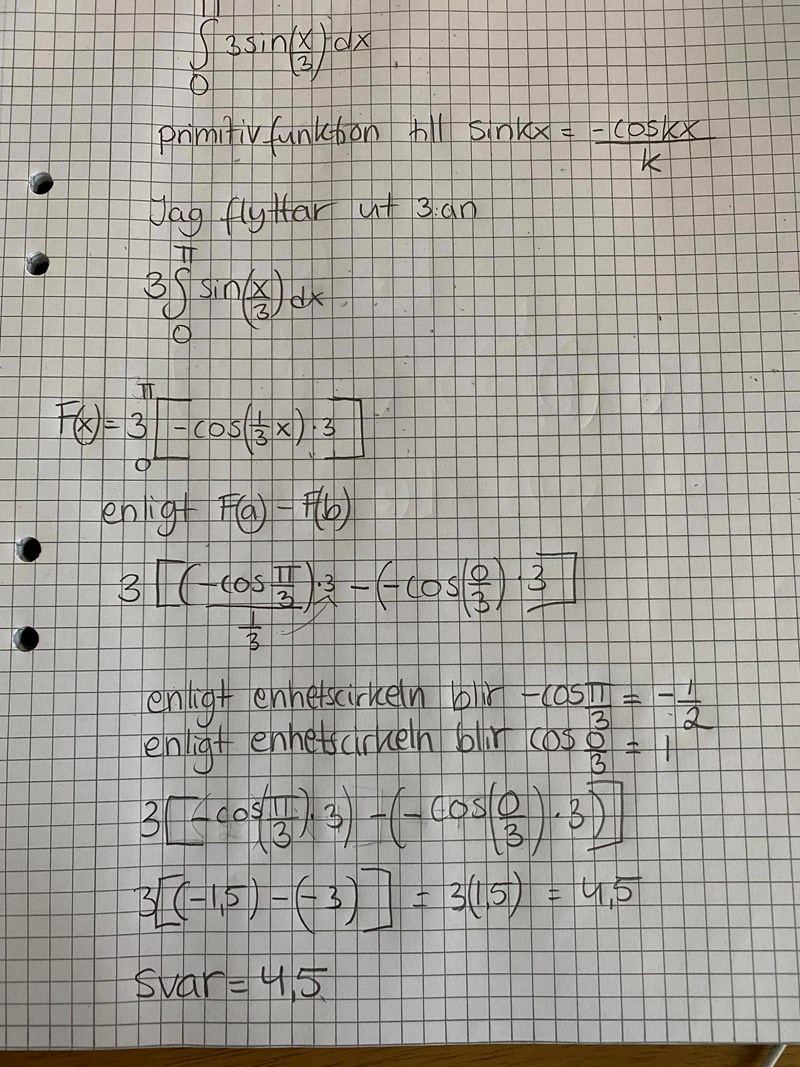 π
∫ 3sin(x/3) dx
0
primitiv funktion till sinkx = -coskx/k
Jag flyttar ut 3:an
π
3∫ sin(x/3) dx
0
π
F(x) = 3[-cos(1/3 x)·3]
0
enligt F(a) - F(b)
3[(-cos π/3)·3 - (-cos(0/3)·3]
1/3
enligt enhetscirkeln blir -cos π/3 = -1/2
enligt enhetscirkeln blir cos 0/3 = 1
3[(-cos(π/3)·3) - (-cos(0/3)·3)]
3[(-1,5) - (-3)] = 3(1,5) = 4,5
svar = 4,5